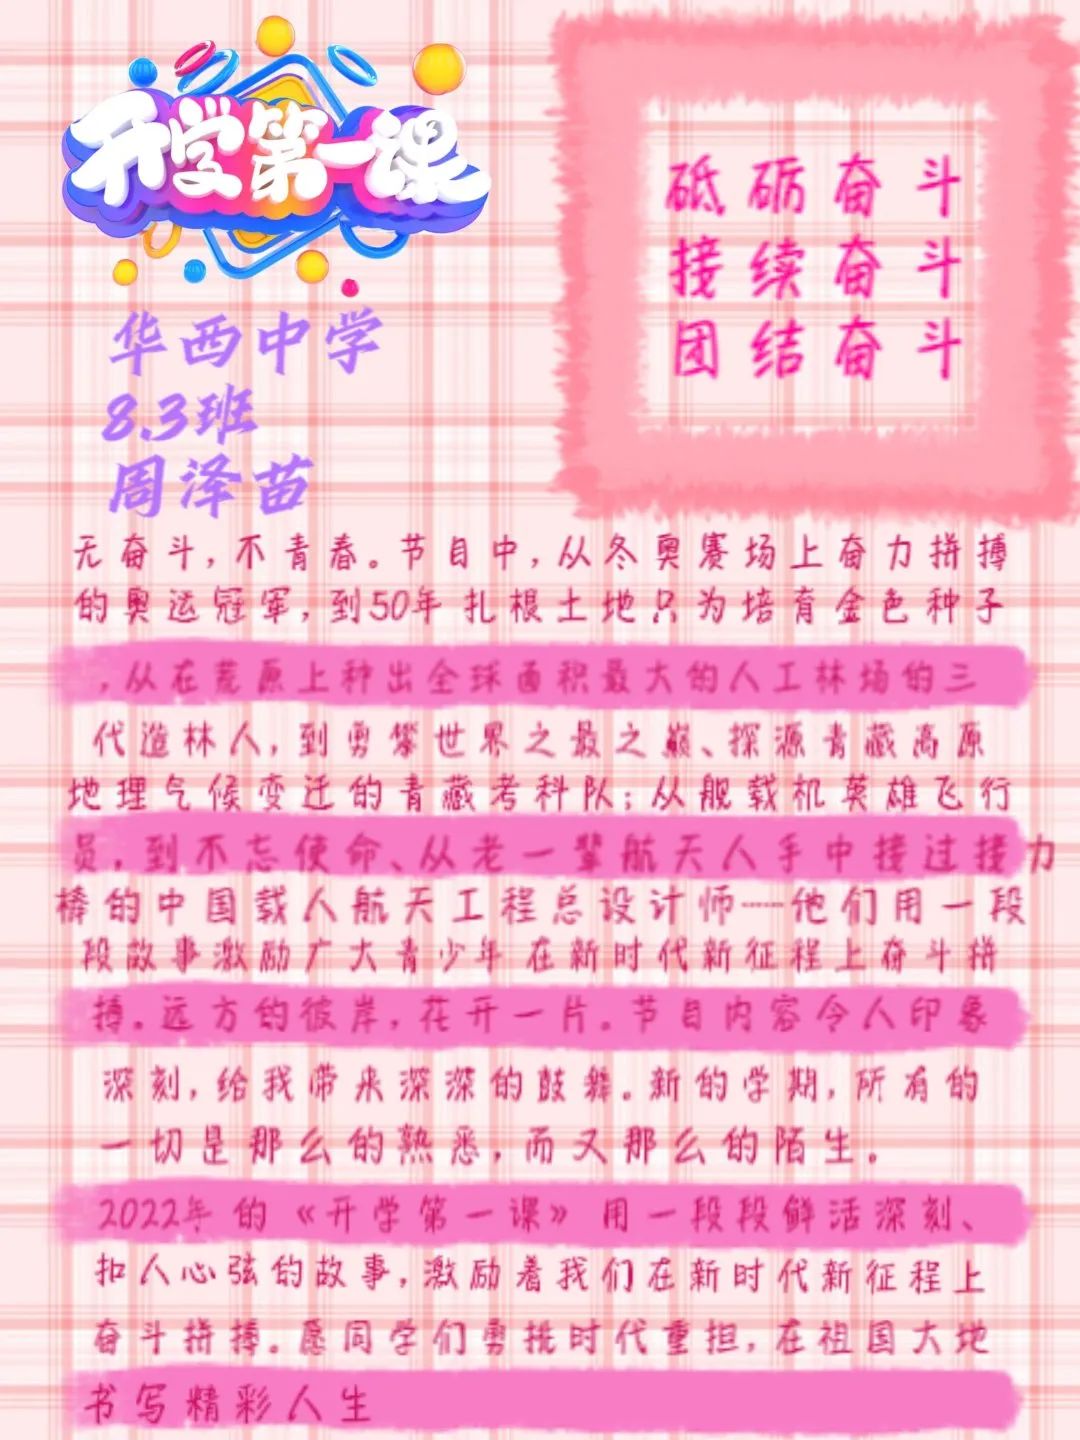 开学第一课
砥砺奋斗
接续奋斗
团结奋斗
华西中学
8.3班
周泽苗
无奋斗，不青春。节目中，从冬奥赛场上奋力拼搏
的奥运冠军，到50年扎根土地只为培育金色种子
，从在荒原上种出全球面积最大的人工林场的三
代造林人，到勇攀世界之最之巅、探源青藏高原
地理气候变迁的青藏考科队；从舰载机英雄飞行
员，到不忘使命、从老一辈航天人手中接过接力
棒的中国载人航天工程总设计师……他们用一段
段故事激励广大青少年在新时代新征程上奋斗拼
搏。远方的彼岸，花开一片。节目内容令人印象
深刻，给我带来深深的鼓舞。新的学期，所有的
一切是那么的熟悉，而又那么的陌生。
2022年的《开学第一课》用一段段鲜活深刻、
扣人心弦的故事，激励着我们在新时代新征程上
奋斗拼搏。愿同学们勇挑时代重担，在祖国大地
书写精彩人生